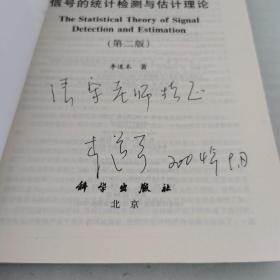 信号的统计检测与估计理论
The Statistical Theory of Signal
Detection and Estimation
(第二版)
李道本 著
请 老师指正
李道本 2004年9月
科学出版社
北京